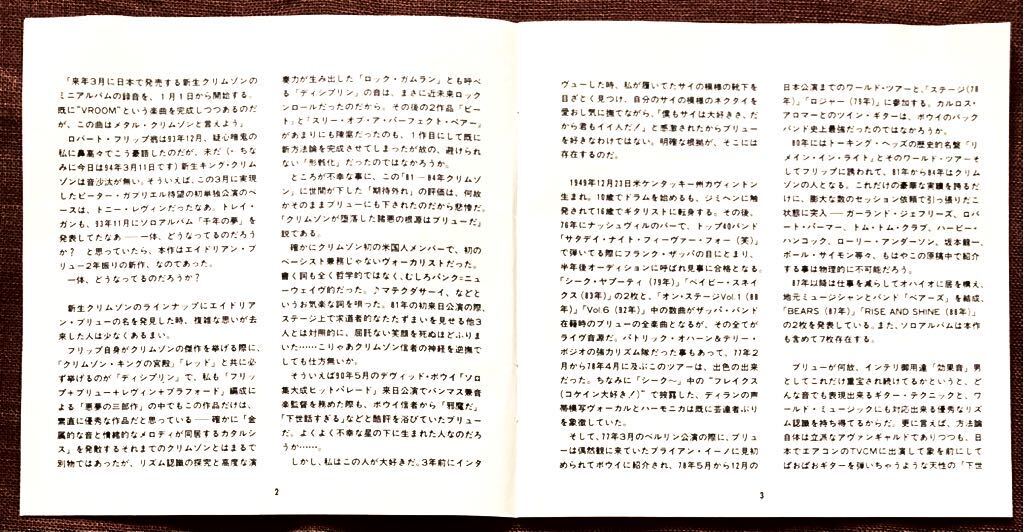 「来年3月に日本で発売する新生クリムゾンの
ミニアルバムの録音を、1月1日から開始する。
既に“VROOM”という楽曲を完成しつつあるのだ
が、この曲はメタル・クリムゾンと言えよう」
ロバート・フリップ柄は93年12月、疑心暗鬼の
私に鼻高々でこう豪語したのだが、未だ(・ちな
みに今日は94年3月11日です)新生キング・クリム
ゾンは音沙汰が無い。そういえば、この3月に実現
したピーター・ガブリエル待望の初単独公演のベ
ースは、トニー・レヴィンだったなあ。トレイ・
ガンも、93年11月にソロアルバム「千年の夢」を
発表してたなあ──一体、どうなってるのだろう
か? と思っていたら、本作はエイドリアン・ブ
リュー2年振りの新作、なのであった。
一体、どうなってるのだろうか?
新生クリムゾンのラインナップにエイドリア
ン・ブリューの名を発見した時、複雑な思いが去
来した人は少なくあるまい。
フリップ自身がクリムゾンの傑作を挙げる際に、
「クリムゾン・キングの宮殿」「レッド」と共に必
ず挙げるのが「ディシプリン」で、私も「フリッ
プ+ブリュー+レヴィン+ブラフォード」編成に
よる「悪夢の三部作」の中でもこの作品だけは、
素直に優秀な作品だと思っている──確かに「金
属的な音と情緒的なメロディが同居するカタルシ
ス」を発散するそれまでのクリムゾンとはまるで
別物ではあったが、リズム認識の探究と高度な演
奏力が生み出した「ロック・ガムラン」とも呼べ
る「ディシプリン」の音は、まさに近未来ロック
ンロールだったのだから。その後の2作品「ビー
ト」と「スリー・オブ・ア・パーフェクト・ペアー」
があまりにも陳腐だったのも、1作目にして既に
新方法論を完成させてしまったが故の、避けられ
ない「形骸化」だったのではなかろうか。
ところが不幸な事に、この「81─84年クリムゾ
ン」に世間が下した「期待外れ」の評価は、何故
かそのままブリューにも下されたのだから悲惨だ。
「クリムゾンが堕落した諸悪の根源はブリューだ」
説である。
確かにクリムゾン初の米国人メンバーで、初の
ベーシスト兼務じゃないヴォーカリストだった。
書く詞も全く哲学的ではなく、むしろパンク=ニュ
ーウェイヴ的だった。♪マテクダサーイ、などと
いうお気楽な詞を唄った。81年の初来日公演の際、
ステージ上で求道者的なたたずまいを見せる他3
人とは対照的に、屈託ない笑顔を死ぬほどふりま
いた……こりゃあクリムゾン信者の神経を逆撫で
しても仕方無いか。
そういえば90年5月のデヴィッド・ボウイ「ソロ
集大成ヒットパレード」来日公演でバンマス兼音
楽監督を務めた際も、ボウイ信者から「邪魔だ」
「下世話すぎる」などと酷評を浴びていたブリュー
だ。よくよく不幸な星の下に生まれた人なのだろ
うか……。
しかし、私はこの人が大好きだ。3年前にインタ
2
ヴューした時、私が履いてたサイの模様の靴下を
目ざとく見つけ、自分のサイの模様のネクタイを
愛おし気に撫でながら、「僕もサイは大好きさ、だ
から君もイイ人だ!」と感激されたからブリュー
を好きなわけではない。明確な根拠が、そこには
存在するのだ。
1949年12月23日米ケンタッキー州カヴィントン
生まれ。10歳でドラムを始めるも、ジミヘンに触
発されて16歳でギタリストに転身する。その後、
76年にナッシュヴィルのバーで、トップ40バンド
「サタデイ・ナイト・フィーヴァー・フォー(笑)」
で弾いてる際にフランク・ザッパの目にとまり、
半年後オーディションに呼ばれ見事に合格となる。
「シーク・ヤブーティ(79年)」「ベイビー・スネイ
クス(83年)」の2枚と、「オン・ステージVol.1(88
年)」「Vol.6(92年)」中の数曲がザッパ・バンド
在籍時のブリューの全楽曲となるが、その全てが
ライヴ音源だ。パトリック・オハーン&テリー・
ボジオの強力リズム隊だった事もあって、77年2
月から78年4月に及ぶこのツアーは、出色の出来
だった。ちなみに「シーク〜」中の“フレイクス
(コケイン大好き/)”で披露した、ディランの声
帯模写ヴォーカルとハーモニカは既に芸達者ぶり
を象徴していた。
そして、77年3月のベルリン公演の際に、ブリュ
ーは偶然観に来ていたブライアン・イーノに見初
められてボウイに紹介され、78年5月から12月の
日本公演までのワールド・ツアーと、「ステージ(78
年)」「ロジャー(79年)」に参加する。カルロス・
アロマーとのツイン・ギターは、ボウイのバック
バンド史上最強だったのではなかろうか。
80年にはトーキング・ヘッズの歴史的名盤「リ
メイン・イン・ライト」とそのワールド・ツアー
そしてフリップに誘われて、81年から84年はクリム
ゾンの人となる。これだけの豪華な実績を誇るだ
けに、膨大な数のセッション依頼で引っ張りだこ
状態に突入──ガーランド・ジェフリーズ、ロバ
ート・パーマー、トム・トム・クラブ、ハービー・
ハンコック、ローリー・アンダーソン、坂本龍一、
ポール・サイモン等々、もはやこの原稿中で紹介
する事は物理的に不可能だろう。
87年以降は仕事を減らしてオハイオに居を構え、
地元ミュージシャンとバンド「ベアーズ」を結成、
「BEARS(87年)」「RISE AND SHINE(88年)」
の2枚を発表している。また、ソロアルバムは本作
も含めて7枚存在する。
ブリューが何故、インテリ御用達「効果音」男
としてこれだけ重宝され続けてるかというと、ど
んな音でも表現出来るギター・テクニックと、ワ
ールド・ミュージックにも対応出来る優秀なリズ
ム認識を持ち得てるからだ。更に言えば、方法論
自体は立派なアヴァンギャルドでありつつも、日
本でエアコンのTVCMに出演して象を前にして
ぱおぱおギターを弾いちゃうような天性の「下世
3